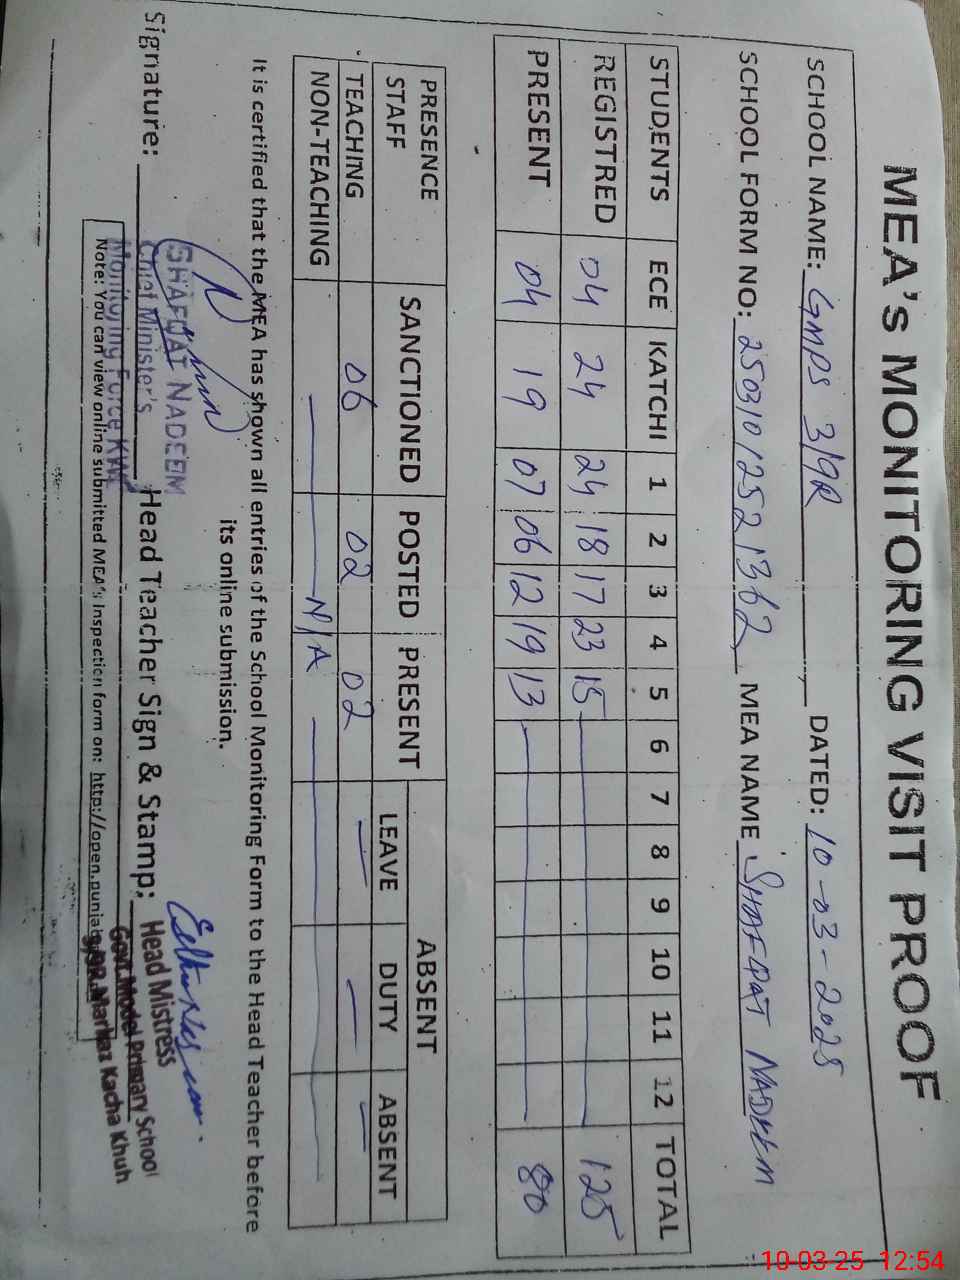 MEA's MONITORING VISIT PROOF
SCHOOL NAME: GMPS 3/9R, DATED: 10-03-2025
SCHOOL FORM NO: 25031012521362 MEA NAME SHAFQAT NADEEM
STUDENTS ECE KATCHI 1 2 3 4 5 6 7 8 9 10 11 12 TOTAL
REGISTRED 04 24 24 18 17 23 15 125
PRESENT 04 19 07 06 12 19 13 80
PRESENCE STAFF SANCTIONED POSTED PRESENT ABSENT
LEAVE DUTY ABSENT
TEACHING 06 02 02 — — —
NON-TEACHING — N/A —
It is certified that the MEA has shown all entries of the School Monitoring Form to the Head Teacher before
its online submission.
Signature: Head Teacher Sign & Stamp:
SHAFQAT NADEEM
Chief Minister's
Monitoring Force KWL
Head Mistress
Govt. Model Primary School
3/9R Markaz Kacha Khuh
Note: You can view online submitted MEA's Inspection form on: http://open.punjab
10-03-25 12:54